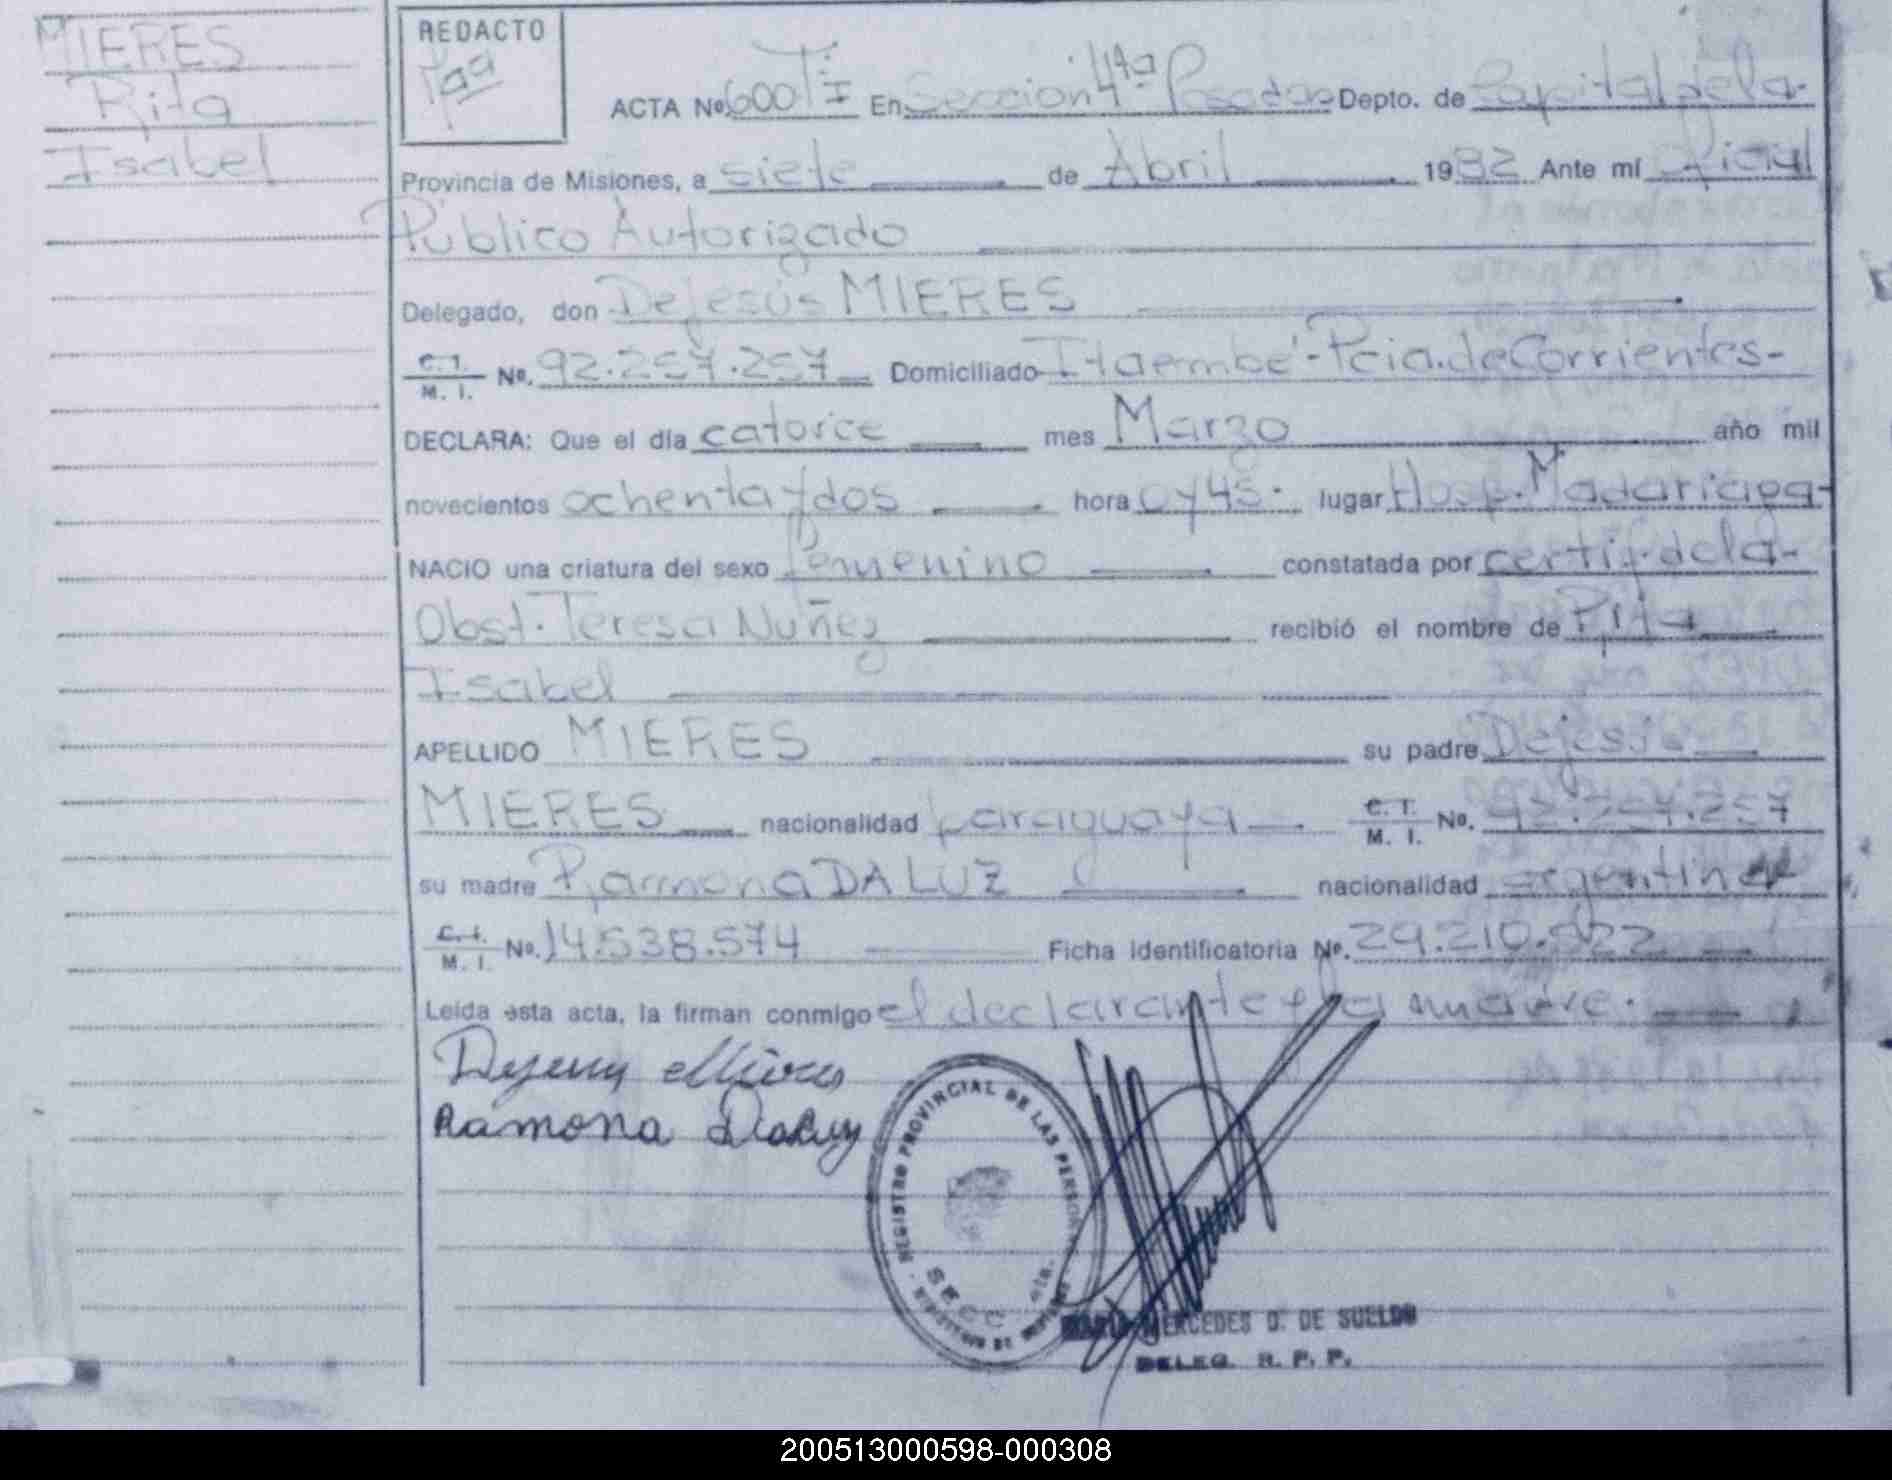 MIERES
Rita
Isabel
REDACTO
ACTA Nº 600 T: I En Seccion 4ta Posadas Depto. de Capital de la
Provincia de Misiones, a siete de Abril 1982 Ante mí Oficial
Público Autorizado
Delegado, don DeJesús MIERES
C. I.
M. I. Nº. 92.257.257 Domiciliado Itaembé - Pcia. de Corrientes-
DECLARA: Que el día catorce mes Marzo año mil
novecientos ochenta y dos hora 0 y 45. lugar Hosp. Madariaga-
NACIO una criatura del sexo femenino constatada por certif. de la-
Obst. Teresa Nuñez recibió el nombre de Rita
Isabel
APELLIDO MIERES su padre DeJesús
MIERES nacionalidad paraguaya C. I.
M. I. Nº. 92.257.257
su madre Ramona DA LUZ nacionalidad argentina
C. I.
M. I. Nº. 14.538.574 Ficha Identificatoria Nº. 29.210.522
Leída esta acta, la firman conmigo el declarante y la madre.
Dejesus Mieres
Ramona Daluz
REGISTRO PROVINCIAL DE LAS PERSONAS
SECC
MERCEDES D. DE SUELDO
DELEG. R. P. P.
200513000598-000308